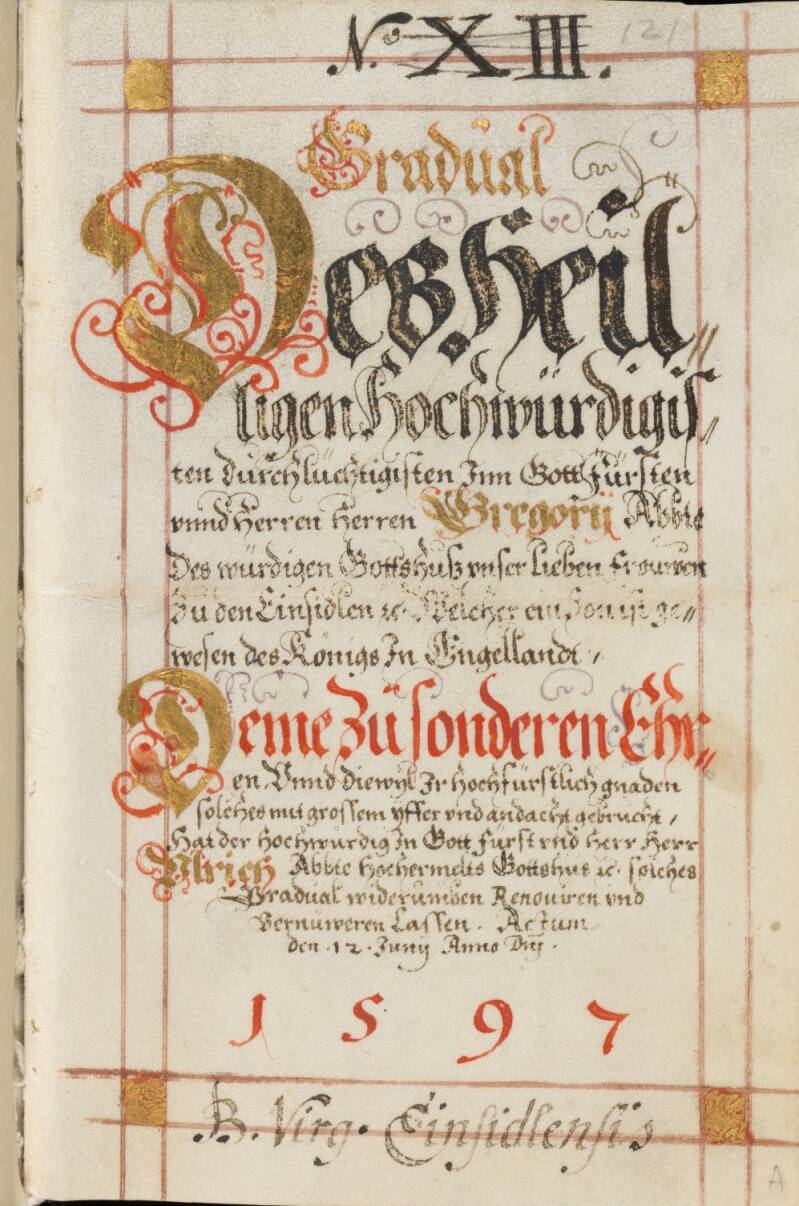 N.º XIII.
121
Gradual
Deß Heil„
ligen Hochwürdigis„
ten Durchlüchtigisten Jnn Gott Fürsten
vnnd Herren Herren Gregorij Abbte
Des würdigen Gottshuß vnser lieben frouwen
Zu den Einsidlen ꝛc. Welcher ein Son ist ge„
wesen des Königs Jn Engellandt,
Deme Zu sonderen Ehr„
en Vnnd diewyl Jr Hochfürstlich gnaden
solches mit grossem yffer vnd andacht gebrucht,
Hat der Hochwürdig Jn Gott Fürst vnd Herr Herr
Vlrich Abbte Hochermelts Gottshus ꝛc. solches
Gradual widerumben Renouiren vnd
Vernüweren Lassen. Actum
den .12. Junij Anno Dnj.
1597
B. Virg. Einsidlensis
A